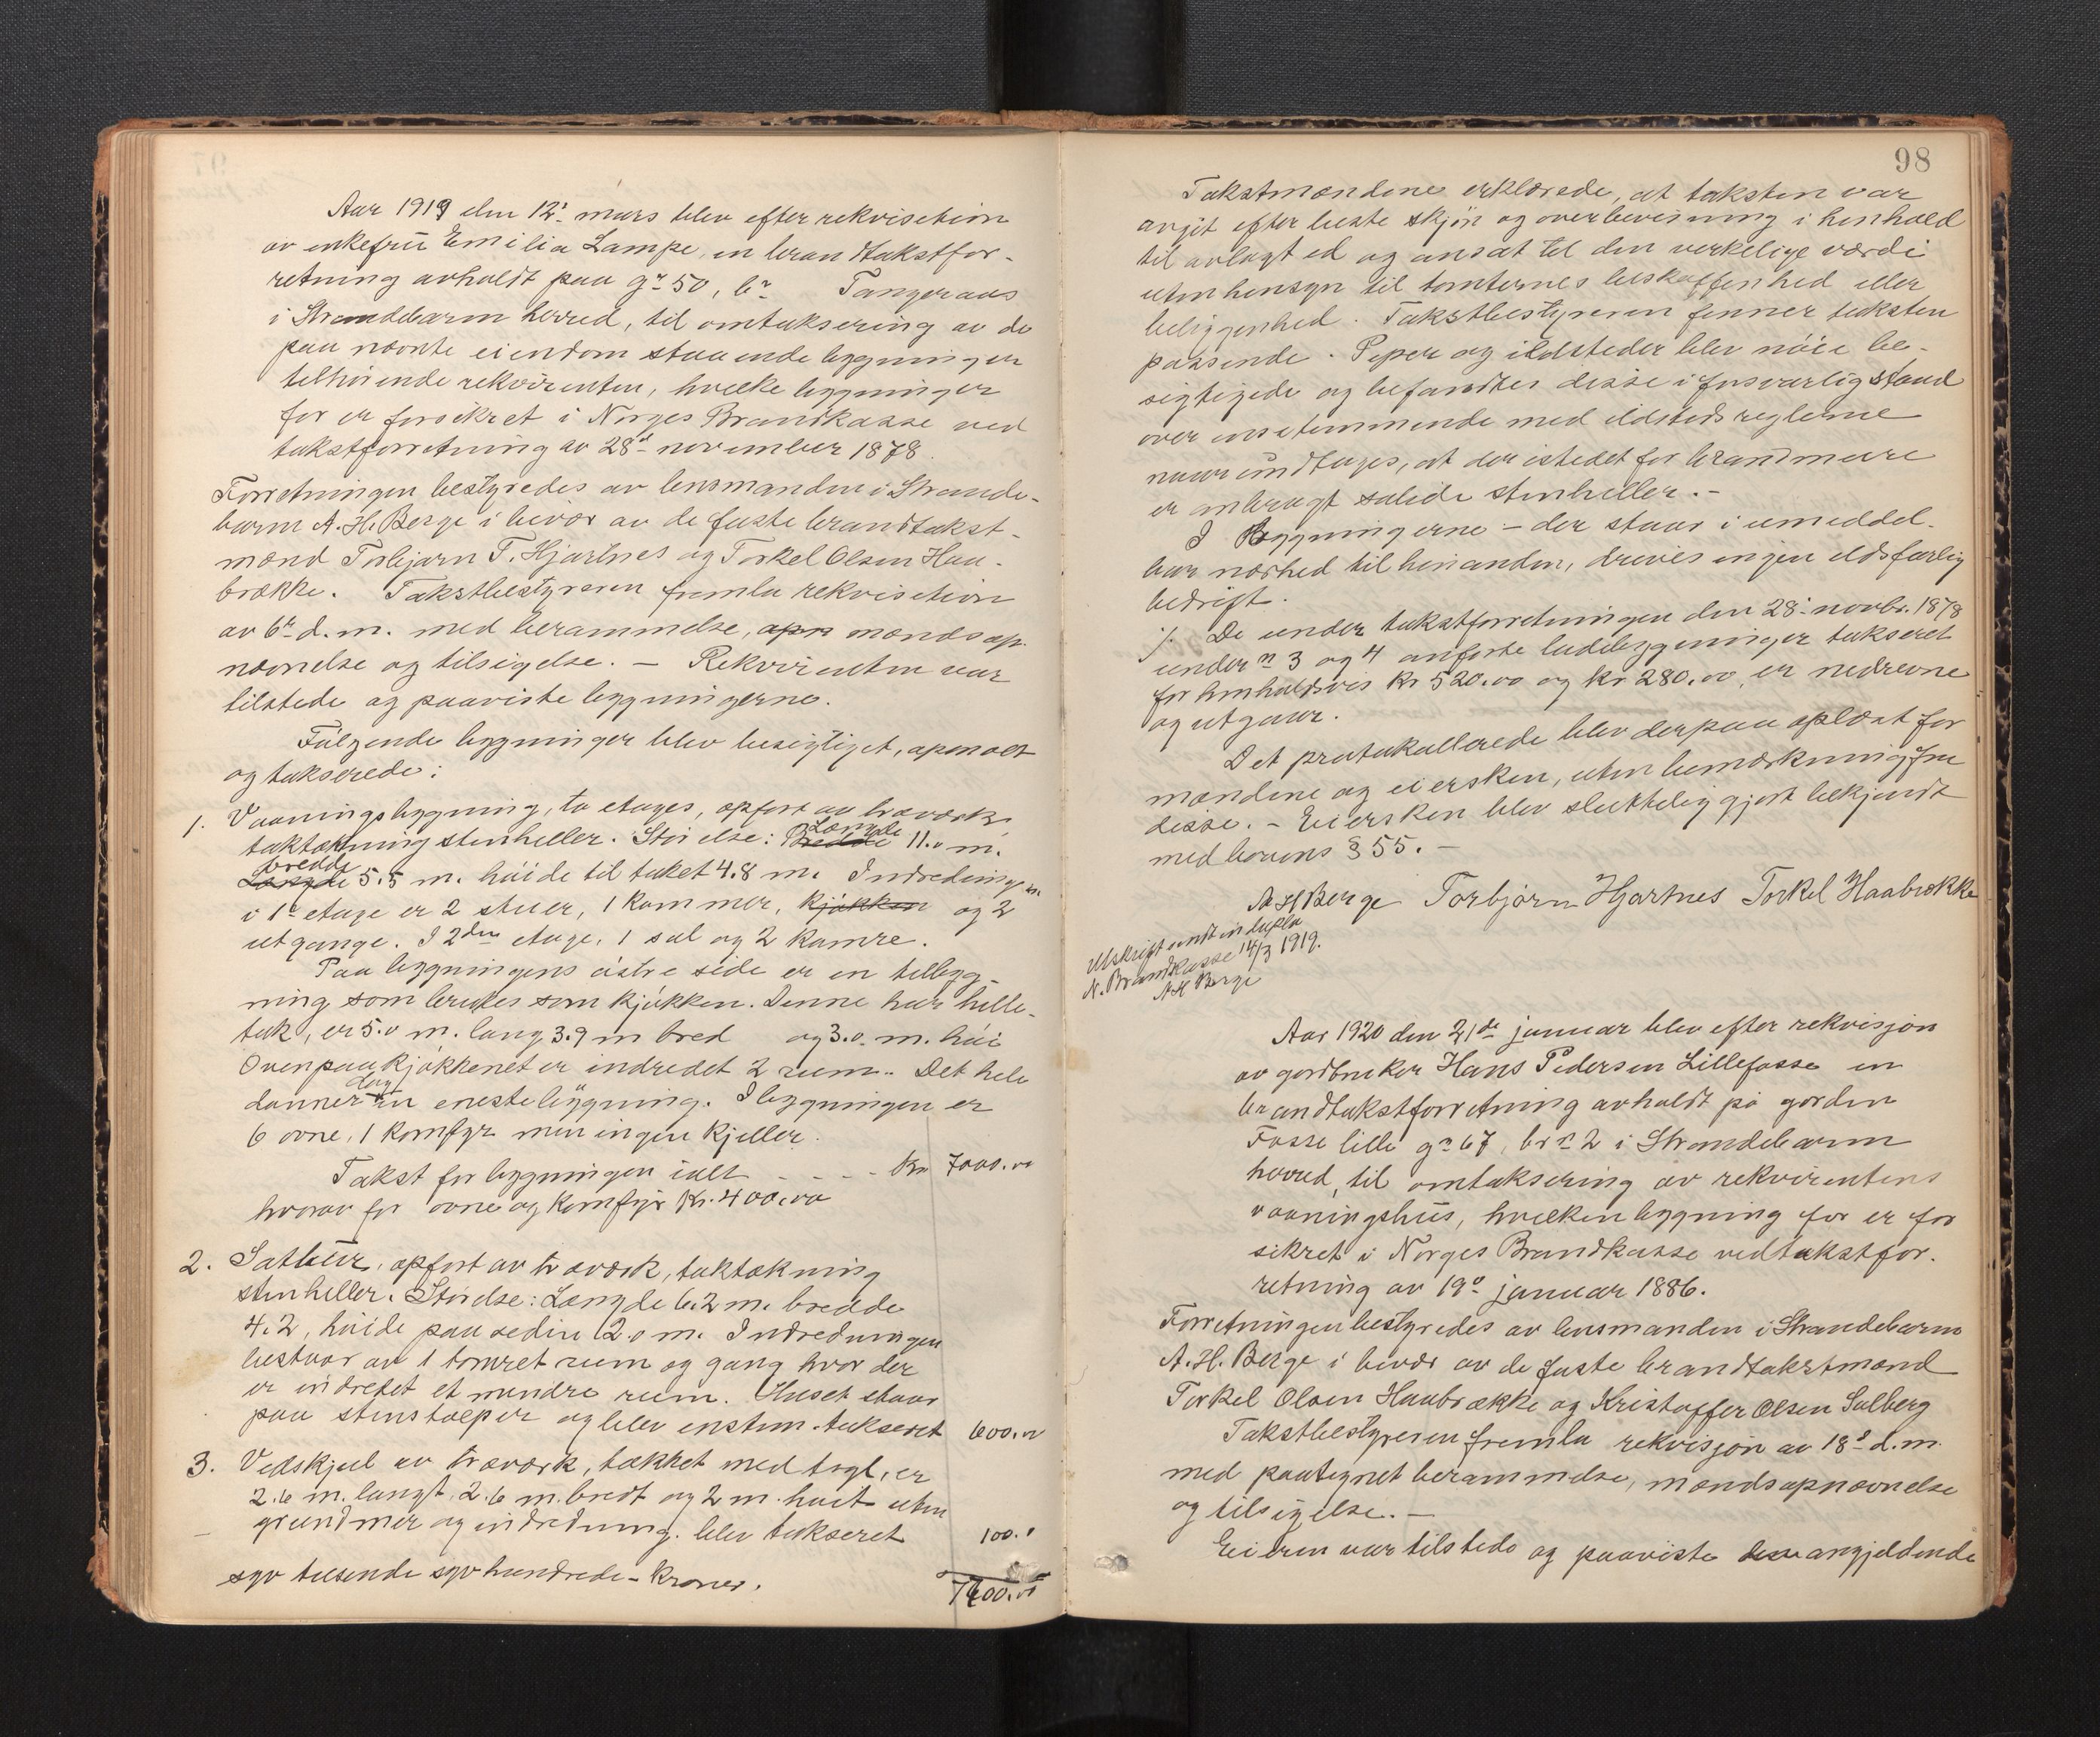 Aar 1919 den 12te mars blev efter rekvisition
av enkefru Emilia Lampe, en brandtakstfor-
retning avholdt paa gr 50, br Tangeraas
i Strandebarm herred, til omtaksering av de
paa nævnte eiendom staaende bygninger
tilhørende rekvirenten, hvilke bygninger
før er forsikret i Norges Brandkasse ved
takstforretning av 28de november 1878.
Forretningen bestyredes av lensmanden i Strande-
barm A. H. Berge i bevær av de faste brandtakst-
mænd Torbjørn T. Hjartnes og Torkel Olsen Haa-
brække. Takstbestyreren fremla rekvisition
av 6te d. m. med berammelse, opn mændsop-
nævnelse og tilsigelse. — Rekvirenten var
tilstede og paaviste bygningerne.
Følgende bygninger blev besigtiget, opmaalt
og takserede:
1. Vaaningsbygning, to etages, opført av træverk,
taktækning stenheller. Størelse: Bredde Længde 11.0 m.
Længde bredde 5.5 m. høide til taket 4.8 m. Indredningen
i 1ste etage er 2 stuer, 1 kammer, kjøkken og 2
utgange. I 2den etage, 1 sal og 2 kamre.
Paa bygningens østre side er en tilbyg-
ning som brukes som kjøkken. Denne har helle-
tak, er 5.0 m. lang 3.9 m bred og 3.0 m. høi
Ovenpaa kjøkkenet er indredet 2 rum.. Det hele
danner dog en eneste bygning. I bygningen er
6 ovne, 1 komfyr men ingen kjeller.
Takst for bygningen ialt - - - - Kr 7000.00
hvorav for ovne og komfyr Kr. 400.00
2. Satbur, opført av træverk, taktækning
stenheller. Størelse: Længde 6.2 m. bredde
4.2, høide paa sedin 2.0 m. Indredningen
bestaar av 1 tømret rum og gang hvor der
er indredet et mindre rum. Huset staar
paa stenstolper og blev enstem. takseret 600.00
3. Vedskjul av træverk, tækket med tegl, er
2.6 m. langt, 2.6 m. bredt og 2 m. høit uten
grundmur og indredning. blev takseret 100.0
syv tusende syv hundrede - kroner. 7700.00
98
Takstmændene erklærede, at taksten var
avgit efter beste skjøn og overbevisning i henhold
til avlagt ed og ansat til den verkelige værdi
uten hensyn til tomternes beskaffenhed eller
beliggenhed. Takstbestyreren finner taksten
passende. Piper og ildsteder blev nöie be-
sigtigede og befandtes disse i forsvarlig stand
overensstemmende med ildstedsreglerne
naar undtages, at der istedet for brandmure
er anbragt solide stenheller.-
I Bygningerne – der staar i umeddel-
bar nærhed til hinanden, drives ingen ildsfarlig
bedrift.
⁒ De under takstforretningen den 28de novbr. 1878
under n 3 og 4 anførte ludebygninger takseret
for henholdsvis Kr 520.00 og kr 280.00, er nedrevne
og utgaar.
Det protokollerede blev derpaa oplæst for
mændene og eiersken, uten bemærkning fra
disse. - Eiersken blev sluttelig gjort bekjendt
med lovens § 55. -
A H Berge Torbjørn Hjartnes Torkel Haabrække
Utskrift sendt in duplo
N. Brandkasse 14/3 1919.
A H Berge
Aar 1920 den 21de januar blev efter rekvisjon
av gardbruker Hans Pedersen Lillefosse en
brandtakstforretning avholdt på garden
Fosse lille gn 67, br n 2 i Strandebarm
herred, til omtaksering av rekvirentens
vaaningshus, hvilken bygning før er for
sikret i Norges Brandkasse ved takstfor-
retning av 19de januar 1886.
Forretningen bestyredes av lensmanden i Strandebarm
A. H. Berge i bevær av de faste brandtakstmænd
Torkel Olsen Haabrække og Kristoffer Olsen Solberg
Takstbestyreren fremla rekvisjon av 18de d.m.
med paategnet berammelse, mændsopnævnelse
og tilsigelse. —
Eieren var tilstede og paaviste den angjeldende